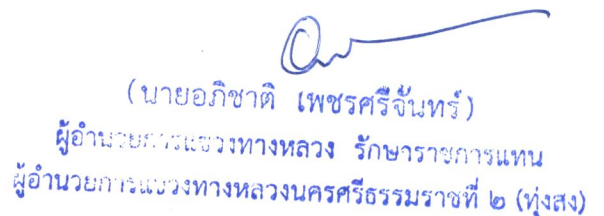 (นายอภิชาติ เพชรศรีจันทร์)
ผู้อำนวยการแขวงทางหลวง รักษาราชการแทน
ผู้อำนวยการแขวงทางหลวงนครศรีธรรมราชที่ ๒ (ทุ่งสง)